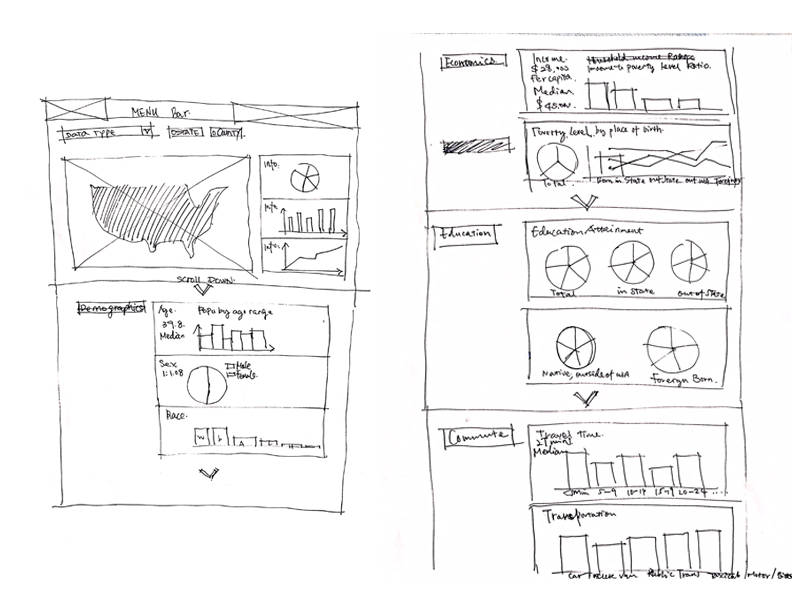 MENU Bar.
DATA TYPE
STATE
COUNTY.
Info.
Info
Info.
SCROLL DOWN.
Demographics
Age.
39.8.
Median
Popu by age range
Sex
1:1.08
Male
Female.
Race.
W
b
A
Economics
Income.
$28,000
Per capita.
Median
Household income Range
Income to poverty level Ratio.
Poverty Level by place of birth.
Total.
Born in State out State out
Education
Education Attainment
Total
in State
out of State
Native, outside of USA
Foreign Born.
Commute
Travel Time.
27 min
Median
5-9
20-24 ....
Transportation
Car
Public Trans